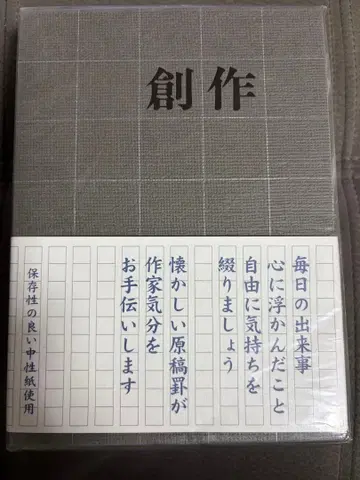 創作
毎日の出来事
心に浮かんだこと
自由に気持ちを
綴りましょう
懐かしい原稿罫が
作家気分を
お手伝いします
保存性の良い中性紙使用